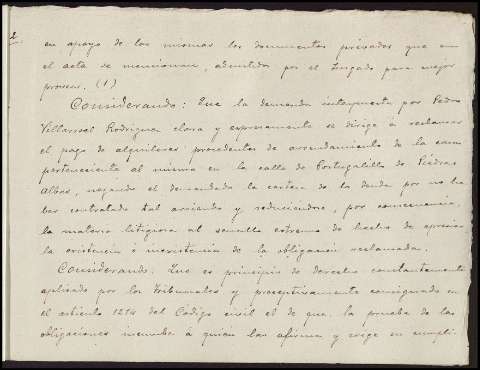 2
en apoyo de las mismas los documentos privados que en
el acta se mencionan, admitidos por el Juzgado para mejor
proveer. (1)
Considerando: Que la demanda interpuesta por Pedro
Villarroel Rodriguez clara y expresamente se dirige á reclamar
el pago de alquileres, procedentes de arrendamiento de la casa
perteneciente al mismo en la calle de Portugalillo de Piedras
Albas, negando el demandado la certeza de la deuda por no ha
ber contratado tal arriendo y reduciendose, por consecuencia,
la materia litigiosa al sencillo extremo de hecho de apreciar
la existencia ó inexistencia de la obligación reclamada.
Considerando: Que es principio de derecho constantemente
aplicado por los Tribunales y preceptivamente consignado en
el articulo 1214 del Código civil el de que la prueba de las
obligaciones incumbe á quién las afirma y exige su cumpli-